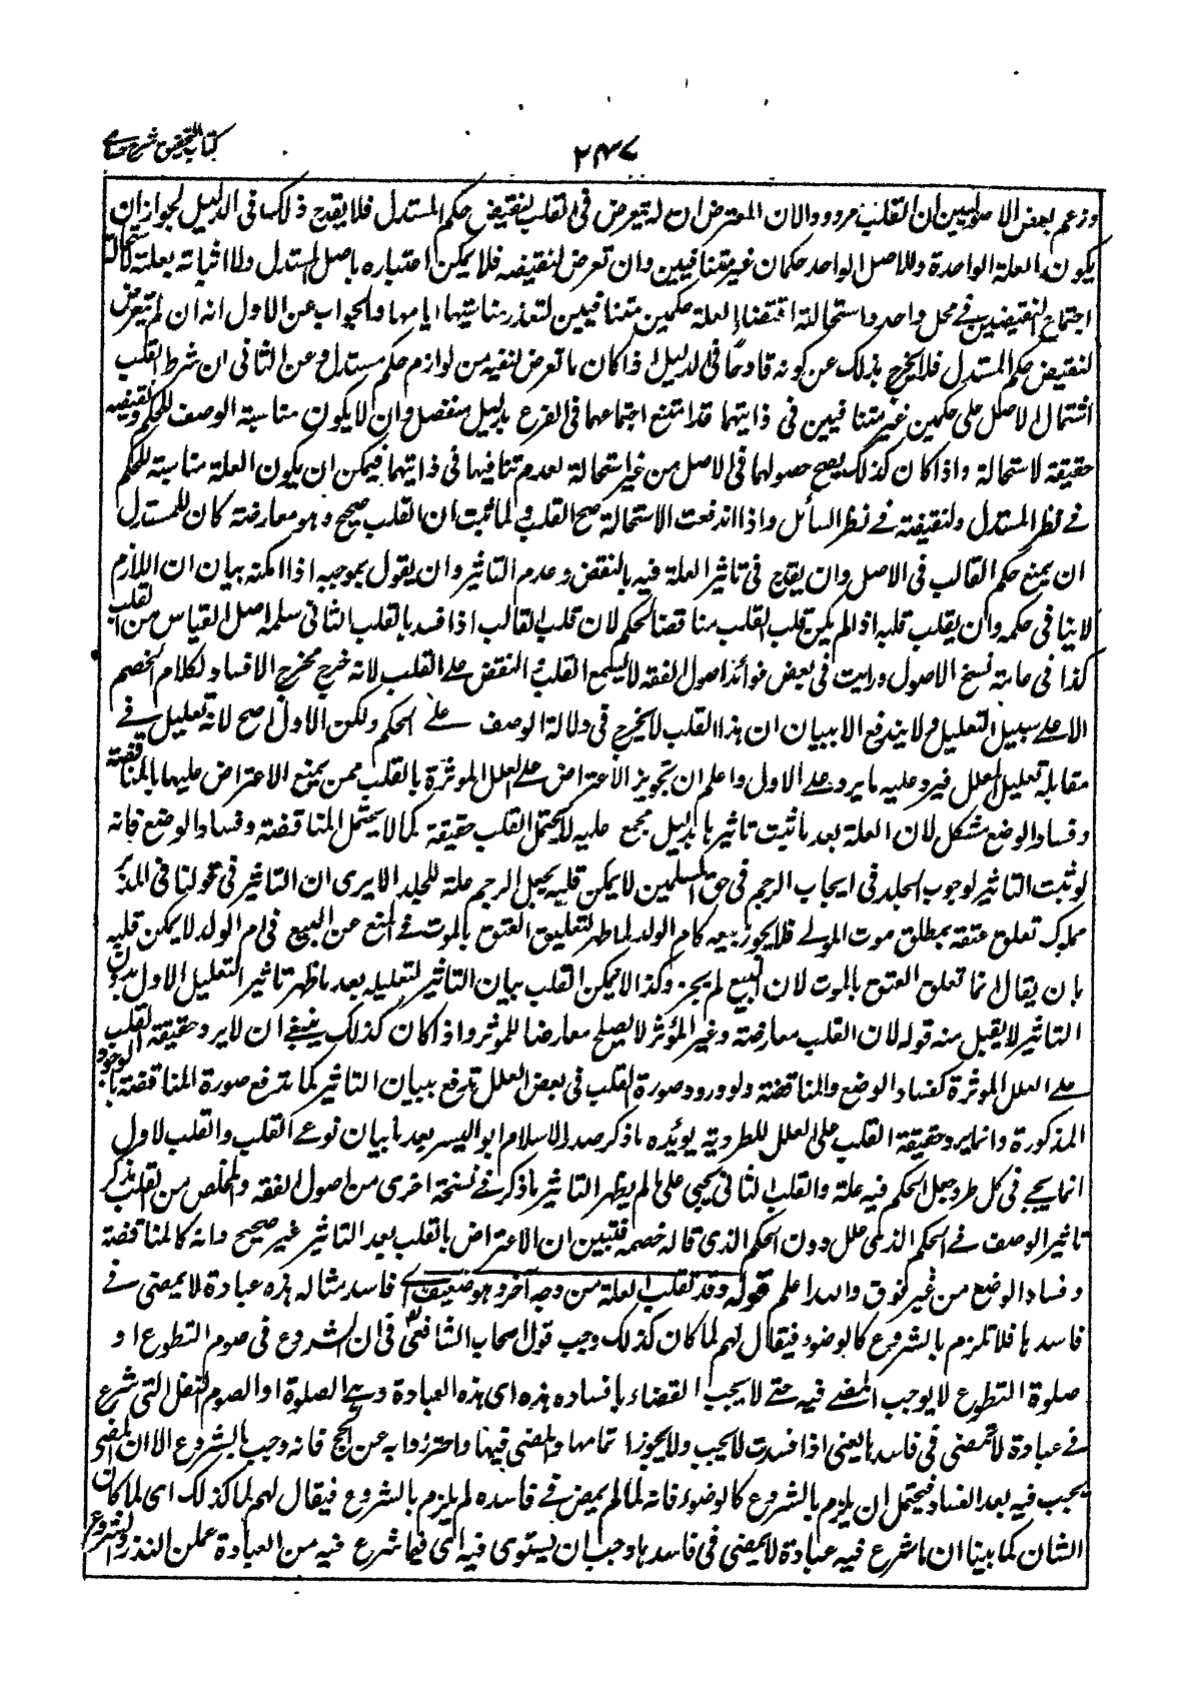 كتاب التحقيق شرح حسامي
٢٤٧
وزعم بعض الاصوليين ان القلب مردود لان المعترض ان لم يتعرض فى القلب لنقيض حكم المستدل فلا يقدح ذلك فى الدليل لجواز ان
يكون للعلة الواحدة وللاصل الواحد حكمان غير متنافيين وان تعرض لنقيضه فلا يمكن اعتباره باصل المستدل ولا اثباته بعلته لاستحالة
اجتماع النقيضين فى محل واحد واستحالة اقتضاء العلة حكمين متنافيين لتعذر مناسبتها اياهما والجواب عن الاول انه ان لم يتعرض
لنقيض حكم المستدل فلا يخرج بذلك عن كونه قادحا فى الدليل اذا كان ما تعرض لنفيه من لوازم حكم مستدل وعن الثانى ان شرط القلب
اشتمال الاصل على حكمين غير متنافيين فى ذاتيهما قد امتنع اجتماعهما فى الفرع بدليل منفصل وان لا يكون مناسبة الوصف للحكم ونقيضه
حقيقة لاستحالة واذا كان كذلك يصح حصولهما فى الاصل من غير استحالة لعدم تنافيهما فى ذاتيهما فيمكن ان يكون العلة مناسبة للحكم
فى نظر المستدل ولنقيضه فى نظر السائل واذا اندفعت الاستحالة صح القلب ولما ثبت ان القلب صحيح وهو معارضة كان للمستدل
ان يمنع حكم القالب فى الاصل وان يقدح فى تاثير العلة فيه بالنقض وعدم التاثير وان يقول بموجبه اذا امكنه بيان ان اللازم
لا ينافى حكمه وان يقلب قلبه اذا لم يكن قلب القلب مناقضا لحكم لان قلب القالب اذا فسد بالقلب الثانى سلم اصل القياس من القلب
كذا فى عامة نسخ الاصول ورايت فى بعض فوائد اصول الفقه لا يسمع القلب والنقض على القلب لانه خرج مخرج الافساد لكلام الخصم
الا على سبيل التعليل ولا يندفع الا ببيان ان هذا القلب لا يخرج فى دلالة الوصف على الحكم ولكن الاول اصح لانه تعليل فى
مقابلة تعليل المعلل فيرد عليه ما يرد على الاول واعلم ان تجويز الاعتراض على العلل الموثرة بالقلب ممن يمنع الاعتراض عليها بالمناقضة
وفساد الوضع مشكل لان العلة بعد ما ثبت تاثيرها بدليل مجمع عليه لا يحتمل القلب حقيقة كما لا يحتمل المناقضة وفساد الوضع فانه
لو ثبت التاثير لوجوب الجلد فى ايجاب الرجم فى حق المسلمين لا يمكن قلبه بجعل الرجم علة للجلد الا يرى ان التاثير فى قولنا فى المدبر
مملوك تعلق عتقه بمطلق موت المولى فلا يجوز بيعه كام الولد لما ظهر لتعليق العتق بالموت فى المنع عن البيع فى ام الولد لا يمكن قلبه
بان يقال انما تعلق العتق بالموت لان البيع لم يجز وكذا لا يمكن القلب ببيان التاثير لتعليله بعد ما ظهر تاثير التعليل الاول بدون
التاثير لا يقبل منه قوله لان القلب معارضة وغير المؤثر لا يصلح معارضا للموثر واذا كان كذلك ينبغى ان لا يرد حقيقة القلب
على العلل الموثرة كفساد الوضع والمناقضة ولو ورود صورة القلب فى بعض العلل تدفع ببيان التاثير كما تدفع صورة المناقضة بالوجوه
المذكورة وانما يرد حقيقة القلب على العلل الطردية يؤيده ما ذكر صدر الاسلام ابو اليسر بعد ما بيان نوعى القلب والقلب الاول
انما يجئ فى كل طرد جعل الحكم فيه علة والقلب الثانى يجئ على ما لم يظهر التاثير ما ذكر فى نسخة اخرى من اصول الفقه والمخلص من القلب بذكر
تاثير الوصف فى الحكم الذى علل دون الحكم الذى قاله خصمه فتبين ان الاعتراض بالقلب بعد التاثير غير صحيح وانه كالمناقضة
وفساد الوضع من غير فرق والله اعلم قوله وقد تقلب العلة من وجه آخر وهو ضعيف اى فاسد مثاله هذه عبادة لا يمضى فى
فاسدها فلا تلزم بالشروع كالوضوء فيقال لهم لما كان كذلك وجب قول اصحاب الشافعى فى ان الشروع فى صوم التطوع او
صلوة التطوع لا يوجب المضى فيه حتى لا يجب القضاء بافساده هذه اى هذه العبادة وهى الصلوة او الصوم النفل التى شرع
فى عبادة لا تمضى فى فاسدها يعنى اذا فسدت لا يجب ولا يجوز اتمامها والمضى فيها واحترزوا به عن الحج فانه وجب بالشروع الا ان المضى
يجب فيه بعد الفساد فيحتمل ان يلزم بالشروع كالوضوء فانه لما لم يمض فى فاسده لم يلزم بالشروع فيقال لهم لما كذلك اى لما كان
الشان كما بينا ان ما شرع فيه عبادة لا يمضى فى فاسدها وجب ان يستوى فيه اى فيما شرع فيه من العبادة عمل النذر والشروع